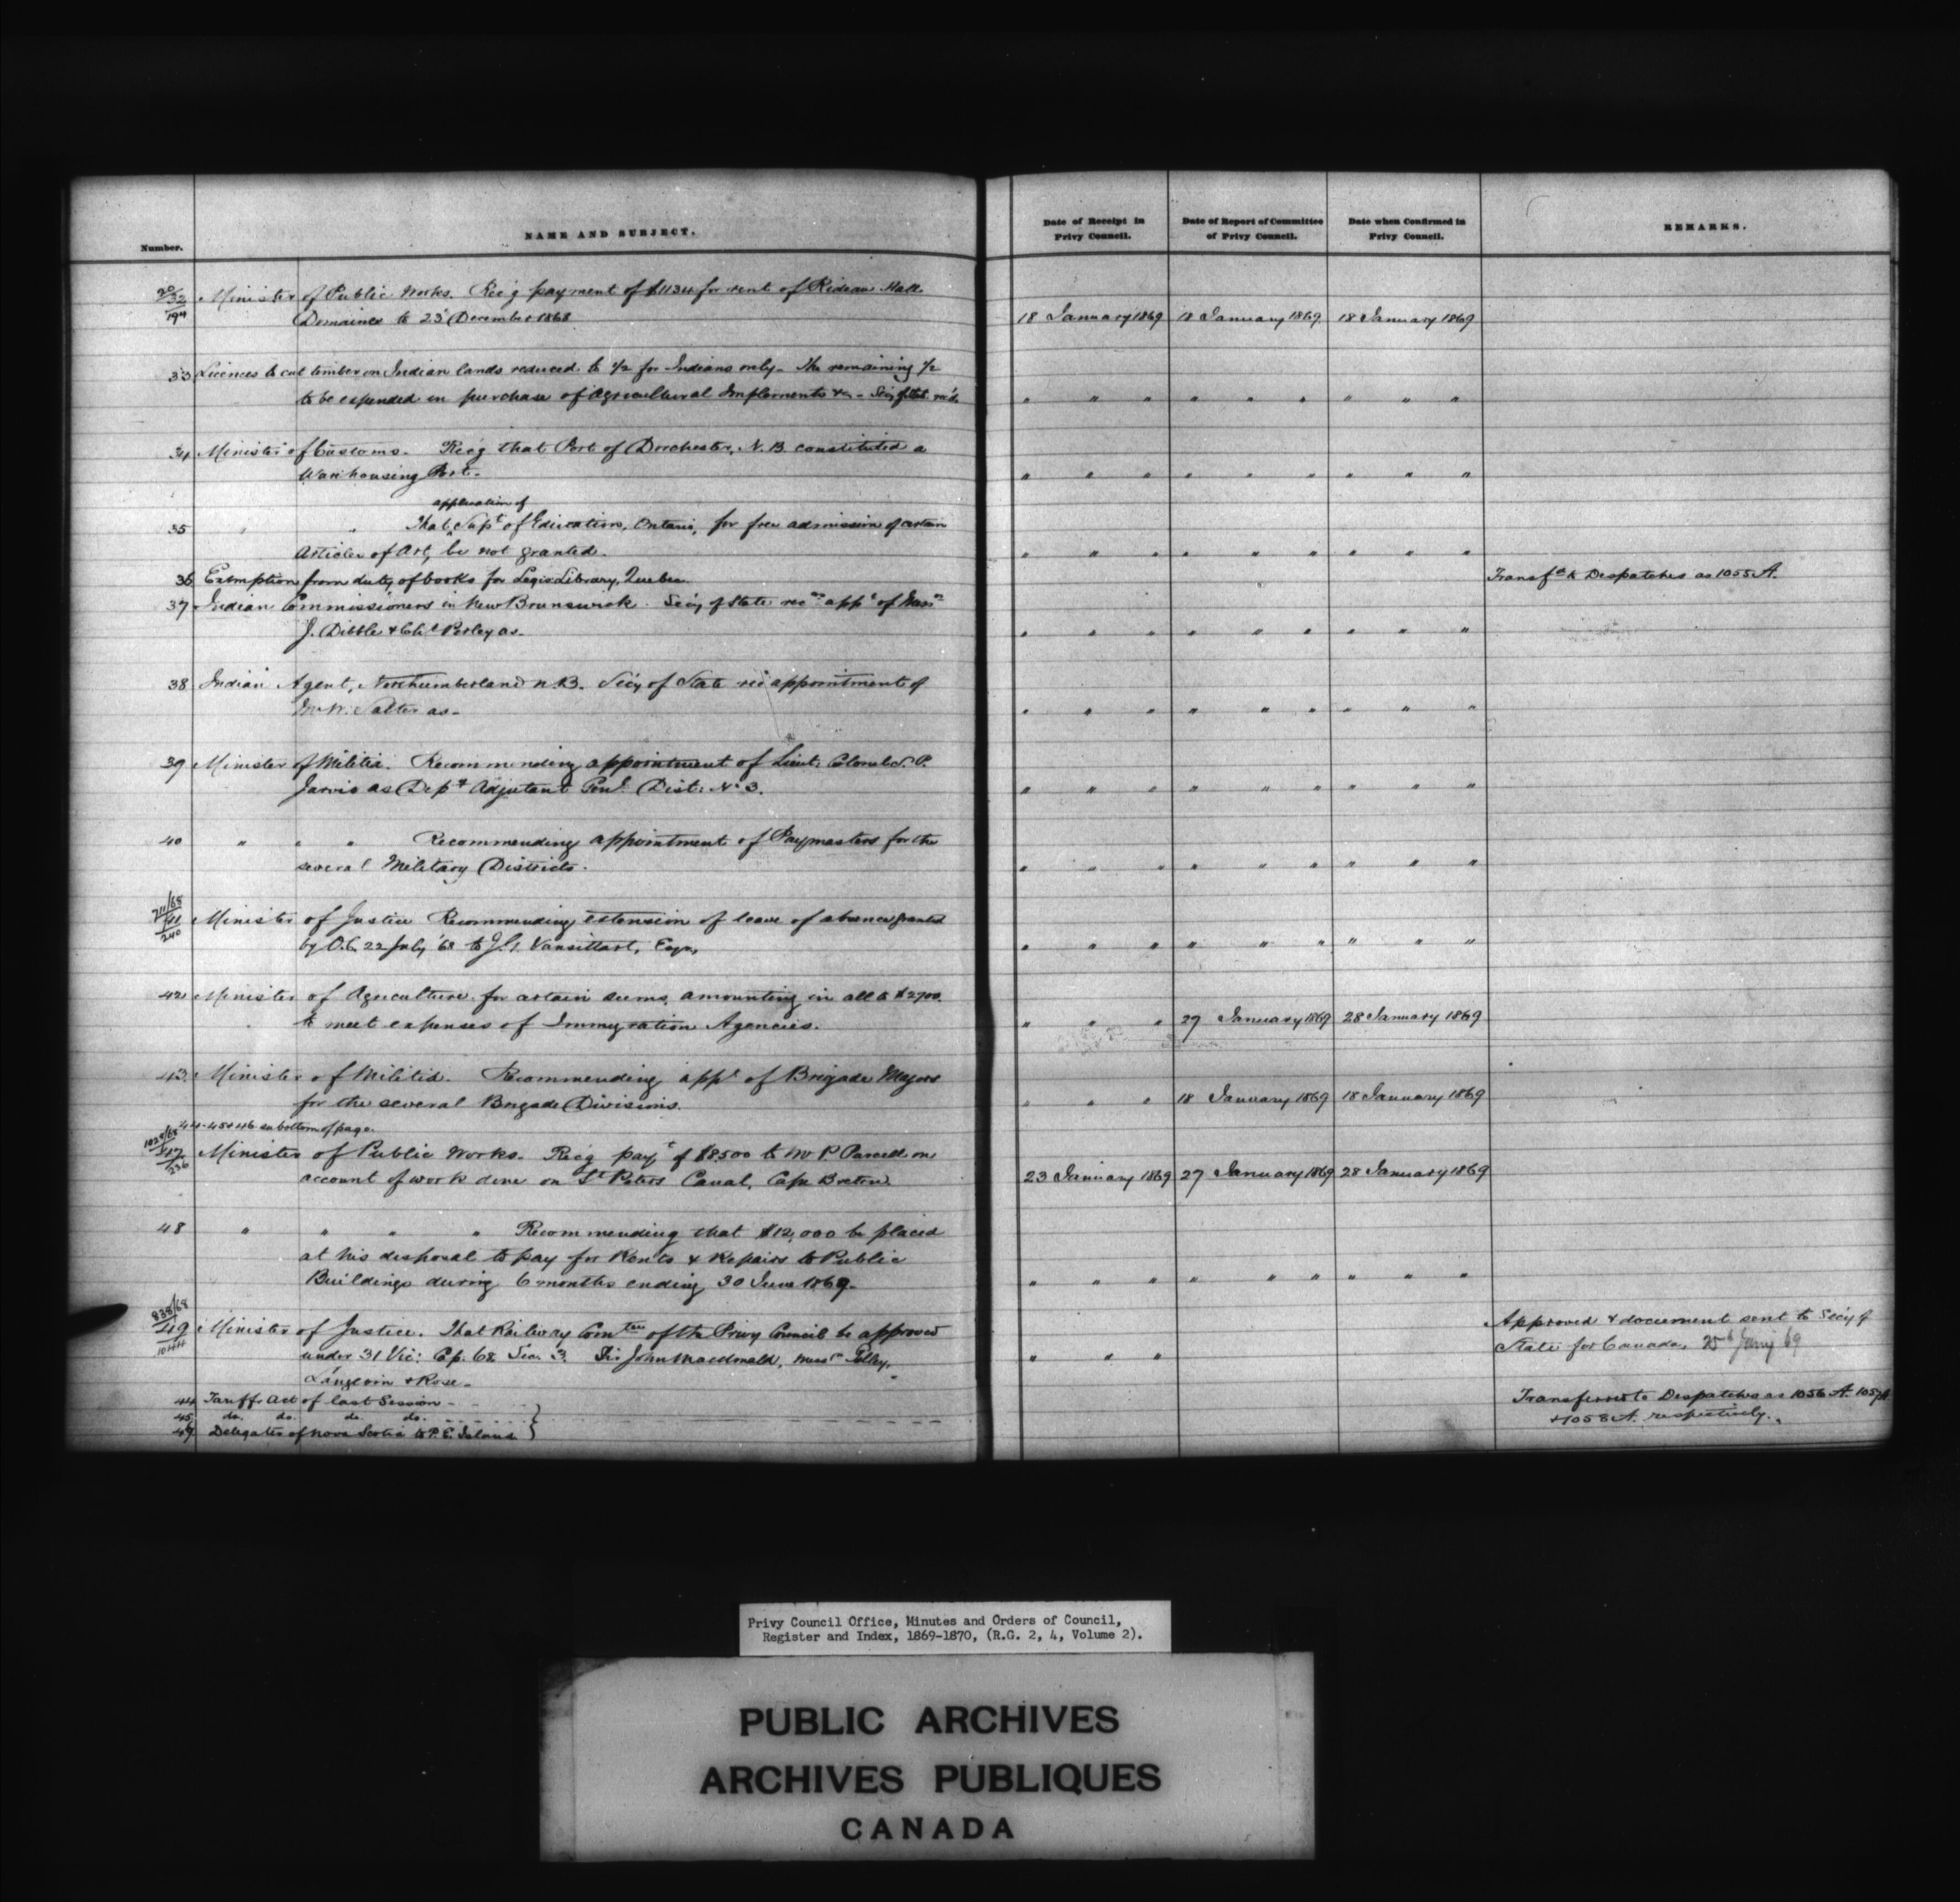 Number.
NAME AND SUBJECT.
Date of Receipt in Privy Council.
Date of Report of Committee of Privy Council.
Date when Confirmed in Privy Council.
REMARKS.
20/32/194 Minister of Public Works. Rec'g payment of $1134 for rent of Rideau Hall
Domaines to 23' December 1868 18 January 1869 18 January 1869 18 January 1869
33 Licences to cut timber on Indian lands reduced to 1/2 for Indians only - The remaining 1/2
to be expended in purchase of Agricultural Implements &c -  " " " " " " " " "
34 Minister of Customs. Rec'g that Port of Dorchester, N.B. constituted a
Warehousing Port. " " " " " " " " "
application of
35 " " That Supt of Education, Ontario, for free admission of certain
Articles of Art, be not granted. " " " " " " " " "
36 Exemption from duty of books for Legis Library, Quebec Transfd to Despatches as 1055 A.
37 Indian Commissioners in New Brunswick. Sec'y of State appt of Messrs
J. Dibble & Chs Perley as - " " " " " " " " "
38 Indian Agent, Northumberland N.B. Sec'y of State rec appointment of
Salter as - " " " " " " " " "
39 Minister of Militia. Recommending appointment of Lieut: Colonel S. P.
Jarvis as Dept Adjutant Genl Dist: No 3. " " " " " " " " "
40 " " " Recommending appointment of Paymasters for the
several Military Districts. " " " " " " " " "
711/68/41/240 Minister of Justice Recommending extension of leave of absence granted
by O.C. 22 July '68 to Vansittart, Esqr, " " " " " " " " "
42 Minister of Agriculture for certain sums, amounting in all to $2700.
to meet expenses of Immigration Agencies. " " " 27 January 1869 28 January 1869
43 Minister of Militia. Recommending appt of Brigade Majors
for the several Brigade Divisions. " " " 18 January 1869 18 January 1869
44-45 & 46 bottom of page.
1028/68/47/236 Minister of Public Works. Rec'g payt of $8500 to Mr P. Purcell on
account of work done on St Peters Canal, Cape Breton. 23 January 1869 27 January 1869 28 January 1869
48 " " " " Recommending that $12,000 be placed
at his disposal to pay for Rents & Repairs to Public
Buildings during 6 months ending 30 June 1869. " " " " " " " " "
838/68/49/1044 Minister of Justice. That Railway Comtee of the Privy Council be approved Approved & document sent to Sec'y of
under 31 Vic: Cp. 68 Sec. 3. Sir John Macdonald, Messrs Tilley, " " " State for Canada, 25th Jany 69
Langevin & Rose -
44 Tariff Act of last Session - Transferred to Despatches as 1056 A. 1057 A
45 do. do. do. do. & 1058 A. respectively.
Delegates of Nova Scotia to P. E. Island
Privy Council Office, Minutes and Orders of Council,
Register and Index, 1869-1870, (R.G. 2, 4, Volume 2).
PUBLIC ARCHIVES
ARCHIVES PUBLIQUES
CANADA